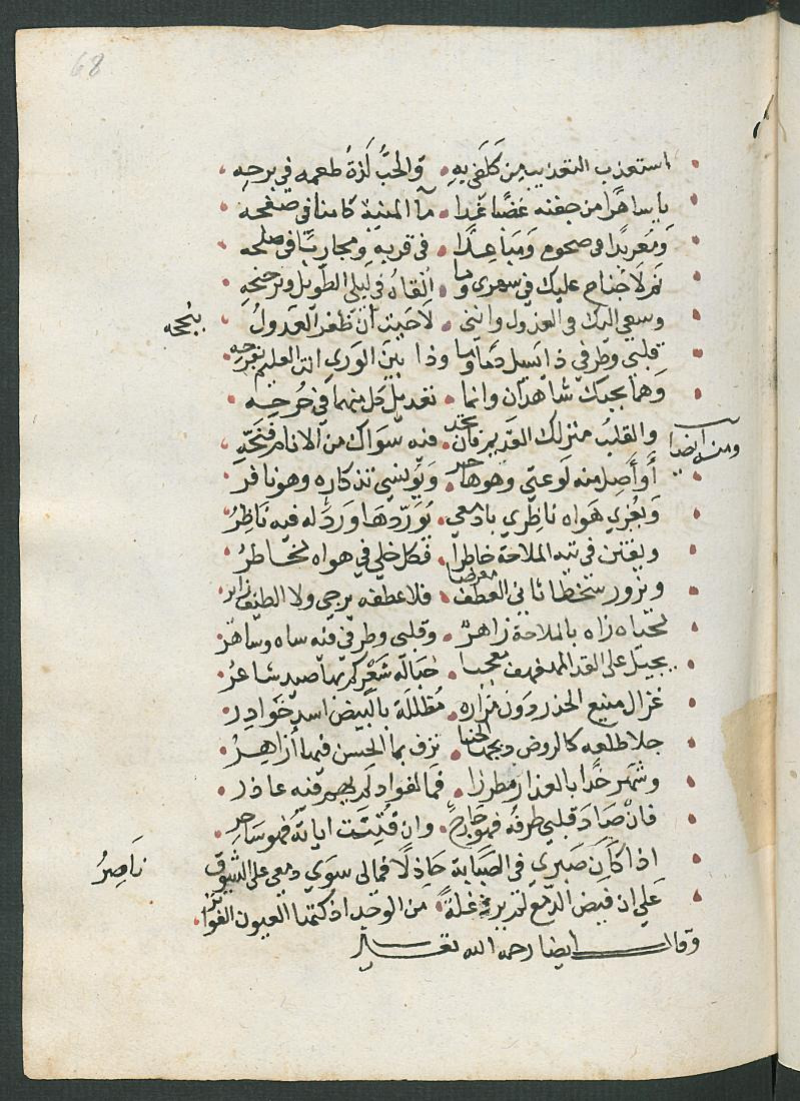 68
استعذب التعذيب من كلفي به والحب لذة طعمه في برحه
يا ساهرا من جفنه غضا غدا ما المنية كامنا في صفحه
ومعربدا في صحوه ومباعدا في قربه ومحاربا في صلحه
نم لا جناح عليك في سهري وما القاه في ليلي الطويل وجنحه
وسعى اليك في العذول وانني لاخيب ان ظفر العذول
بنجحه
قلبي وطرفي ذا يسيل دما وما وذا بين الوري انت العليم بقرحه
وهما بحبك شاهدان وانما تعديل كل منهما في جرحه
والقلب منزلك القديم فان تجد فيه سواك من الانام فنحه
ومنه ايضا
أواصل منه لوعتي وهو هاجر ويؤنسني تذكاره وهو نافر
ويغري هواه ناظري بادمعي يوردها ورد له فيه ناظر
ويفتن في تيه الملاحة خاطرا فكل خلي في هواه مخاطر
ويزور سخطا ثاني العطف معرضا فلا عطفه يرجى ولا الطيف زاير
محياه زاه بالملاحة زاهر وقلبي وطرفي فيه ساه وساهر
يجيل على القد المهفهف معجبا حباله شعر كم بها صيد شاعر
غزال منيع الخدر دون مزاره مظللة بالبيض اسد خوادر
جلا طلعه كالروض ديجها الحيا ترف بما الحسن فيها ازاهر
وشهر خدا بالعذار مطرزا فما لفواد لم يهم فيه عاذر
فان صاد قلبي طرفه فهو جارح وان فتنت اياته فهو ساحر
اذا كان صبري في الصبابة خاذلا فمالي سوي دمعي على الشوق
ناصر
على ان فيض الدمع لم يرو غلة من الوجد اذكتها العيون الفواتر
وقال ايضا رحمه الله تعالى